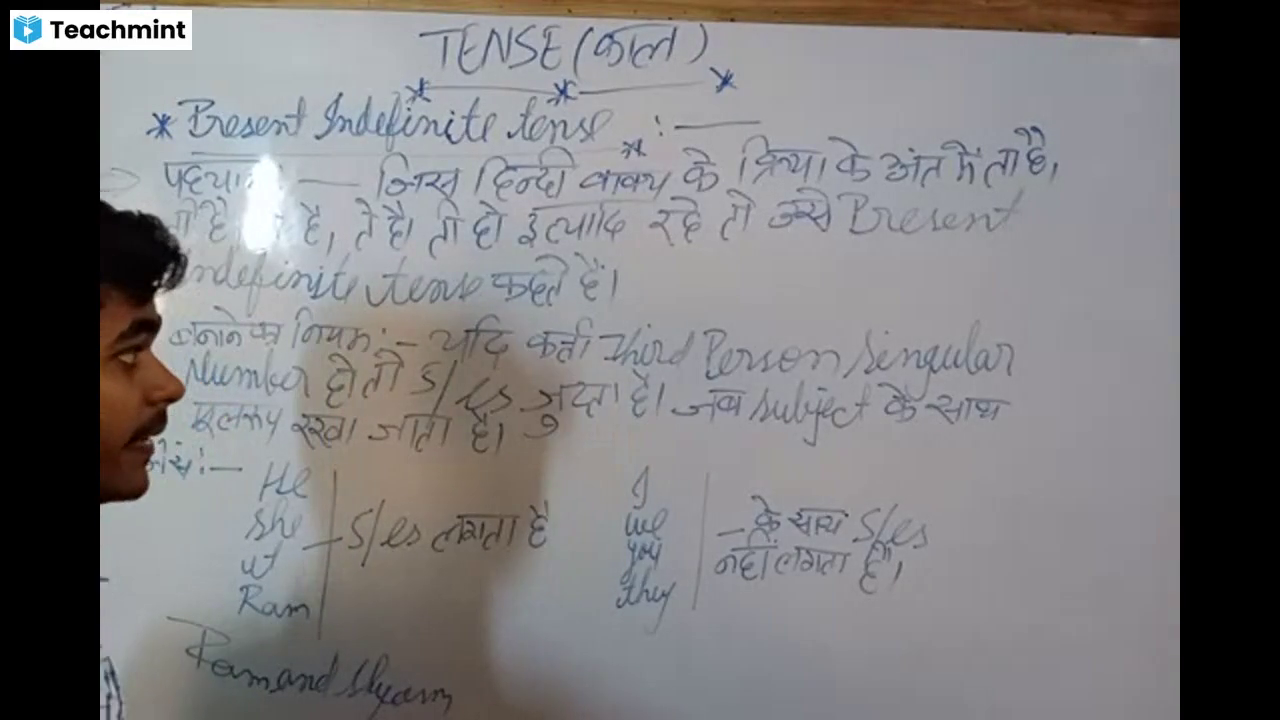 Teachmint
TENSE (काल)
* Present Indefinite tense :—
— जिस हिन्दी वाक्य के क्रिया के अंत में ता है,
है, ते है। तो हो इत्यादि रहे तो उसे Present
Indefinite tense कहते हैं।
बनाने का नियम:- यदि कर्ता third Person singular
Number हो तो S/es जुटता है। जब subject के साथ
रखा जाता है।
जैसे:—
He
she
it
Ram
— S/es लगता है
I
we
you
they
— के साथ S/es
नहीं लगता है।
Ram and Shyam